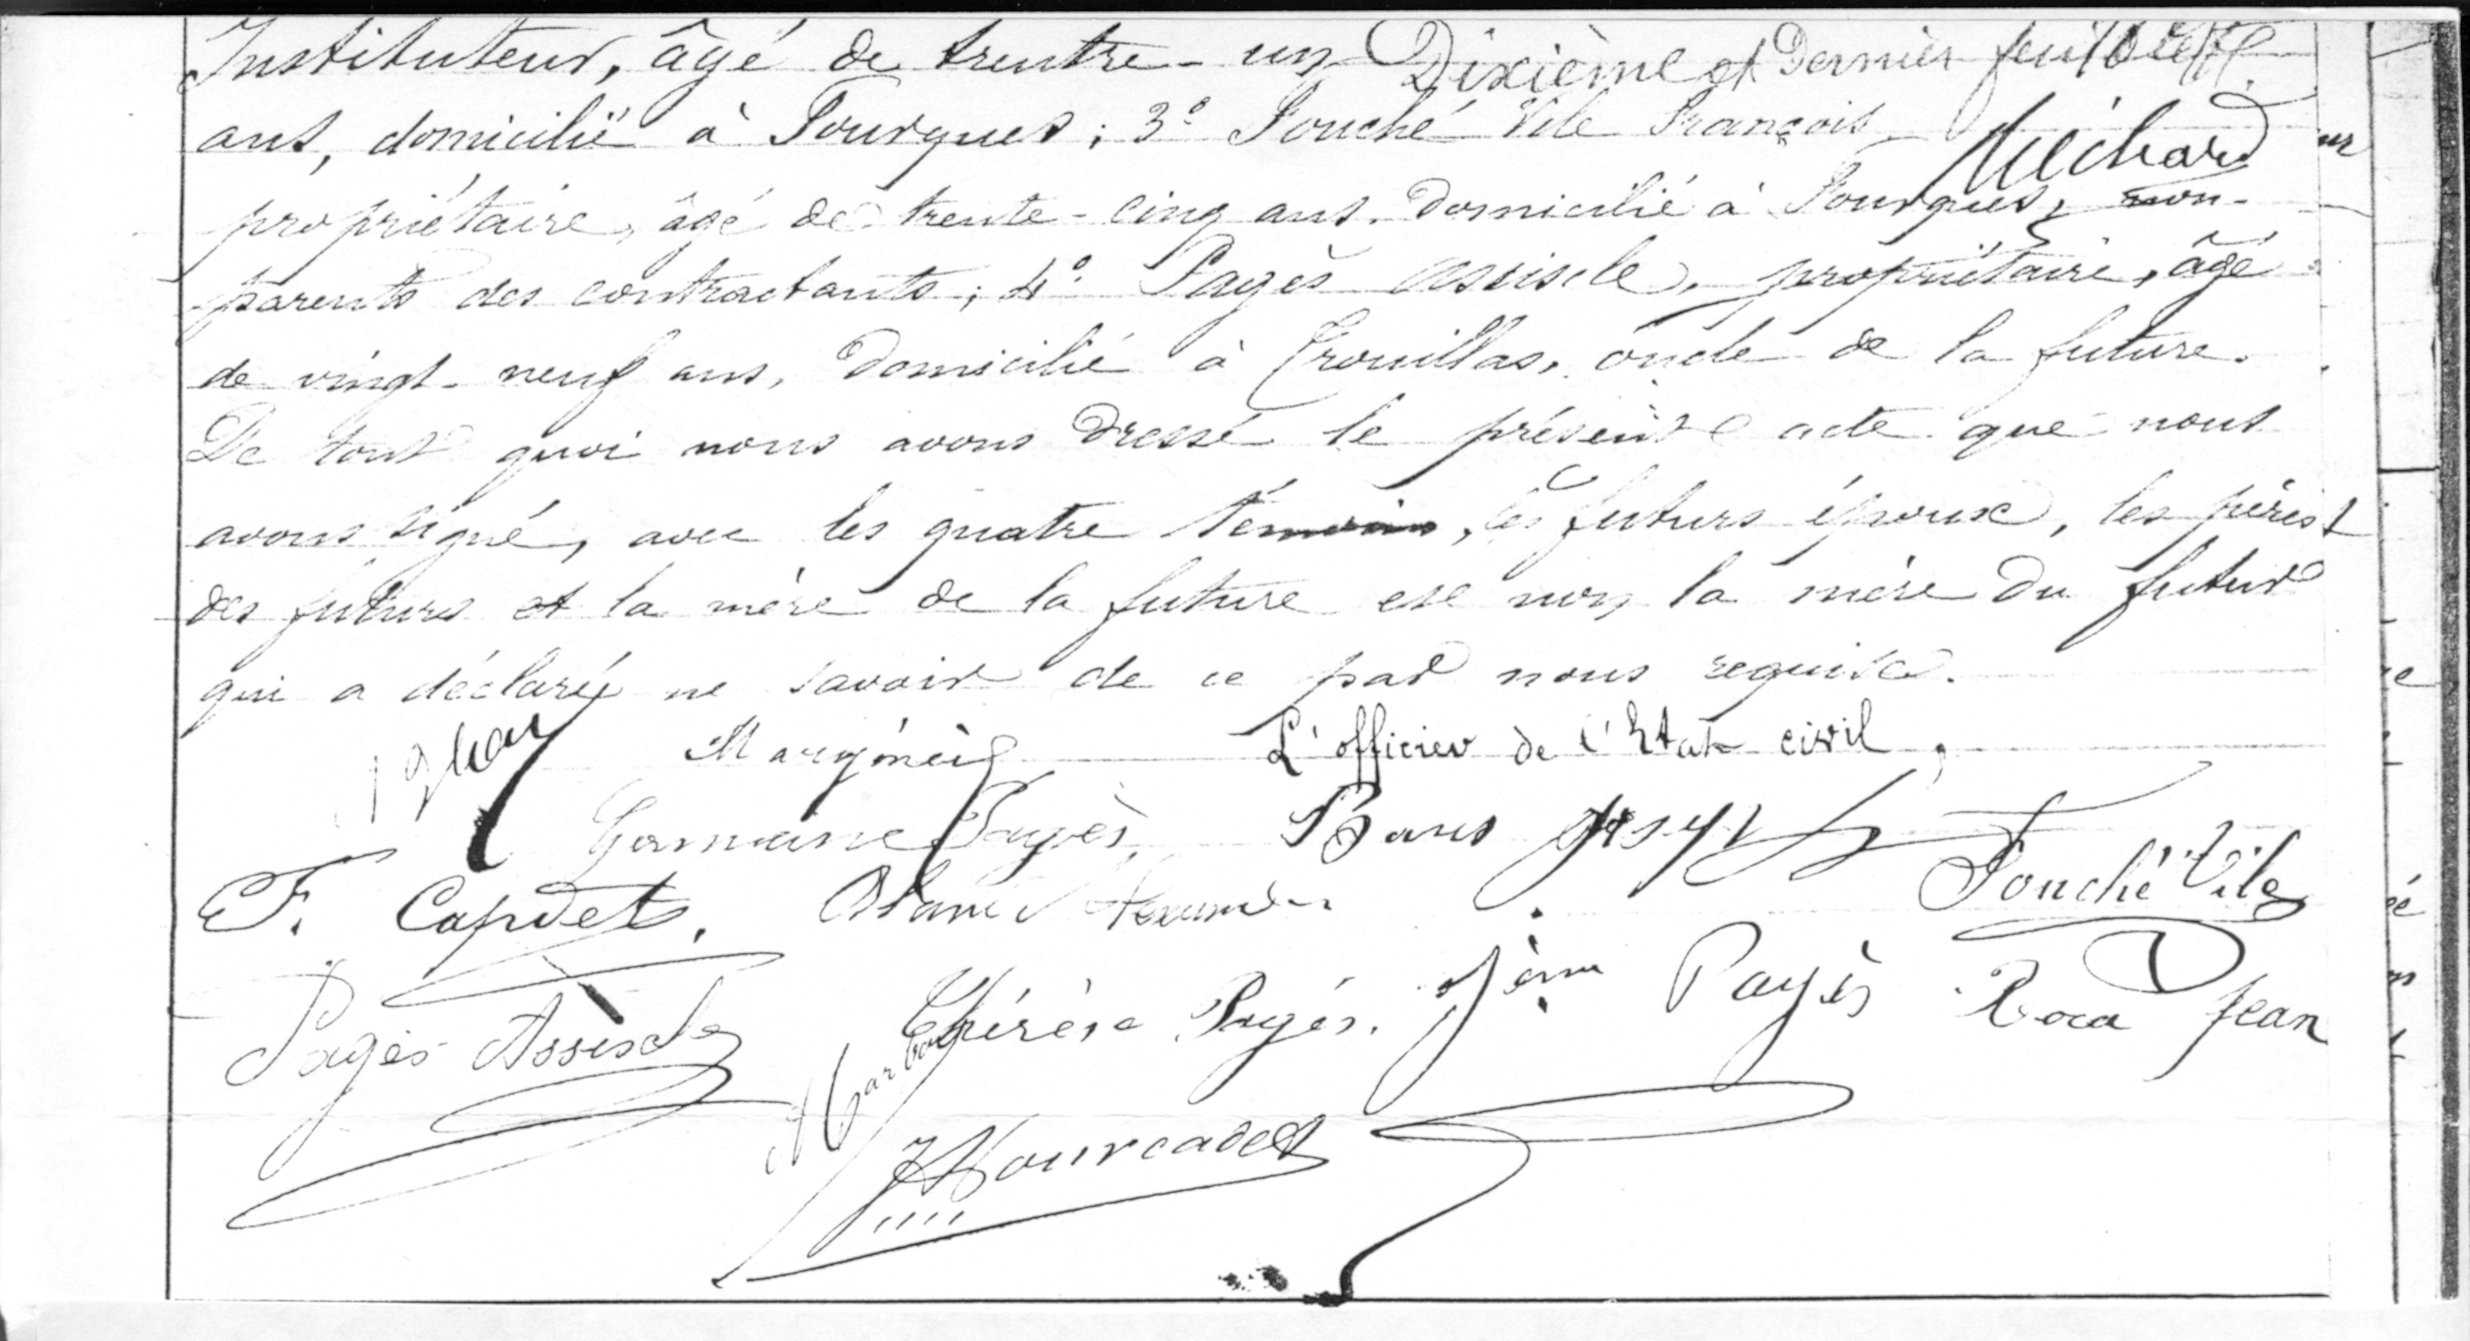 Instituteur, âgé de trentre-un Dixième et Dernier feuillet
ans, domicilié à Fourques; 3° Fouché Vile François Méchard
propriétaire, âgé de trente-cinq ans, domicilié à Fourques, non-
parents des contractants; 4° Pagès Assiscle, propriétaire, âgé
de vingt-neuf ans, domicilié à Trouillas, oncle de la future.
De tout quoi nous avons dressé le présent acte que nous
avons signé, avec les quatre témoins, les futurs époux, les pères
des futurs et la mère de la future et non la mère du futur
qui a déclaré ne savoir de ce par nous requise.
L'officier de l'Etat civil,
Germaine Pagès
F. Capdet. Fouché Vile
Pagès Assiscle Thérèse Pagès. Pagès Roca Jean
Hourcadet